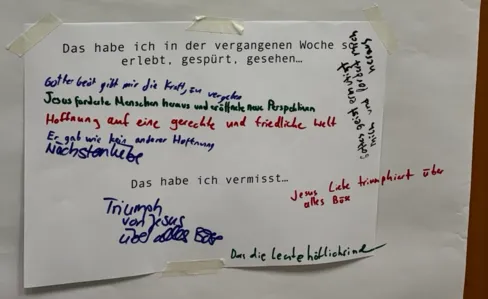 Das habe ich in der vergangenen Woche so
erlebt, gespürt, gesehen…
Gottes Geist gibt mir die Kraft, zu vergeben
Jesus forderte Menschen heraus und eröffnete neue Perspektiven
Hoffnung auf eine gerechte und friedliche Welt
Er gab wie kein anderer Hoffnung
Nächstenliebe
Das habe ich vermisst…
Triumph
von Jesus
über alles Böse
Jesus Liebe triumphiert über
alles Böse
Das die Leute höflich sind
Gottes Geist
mich und fordert mich